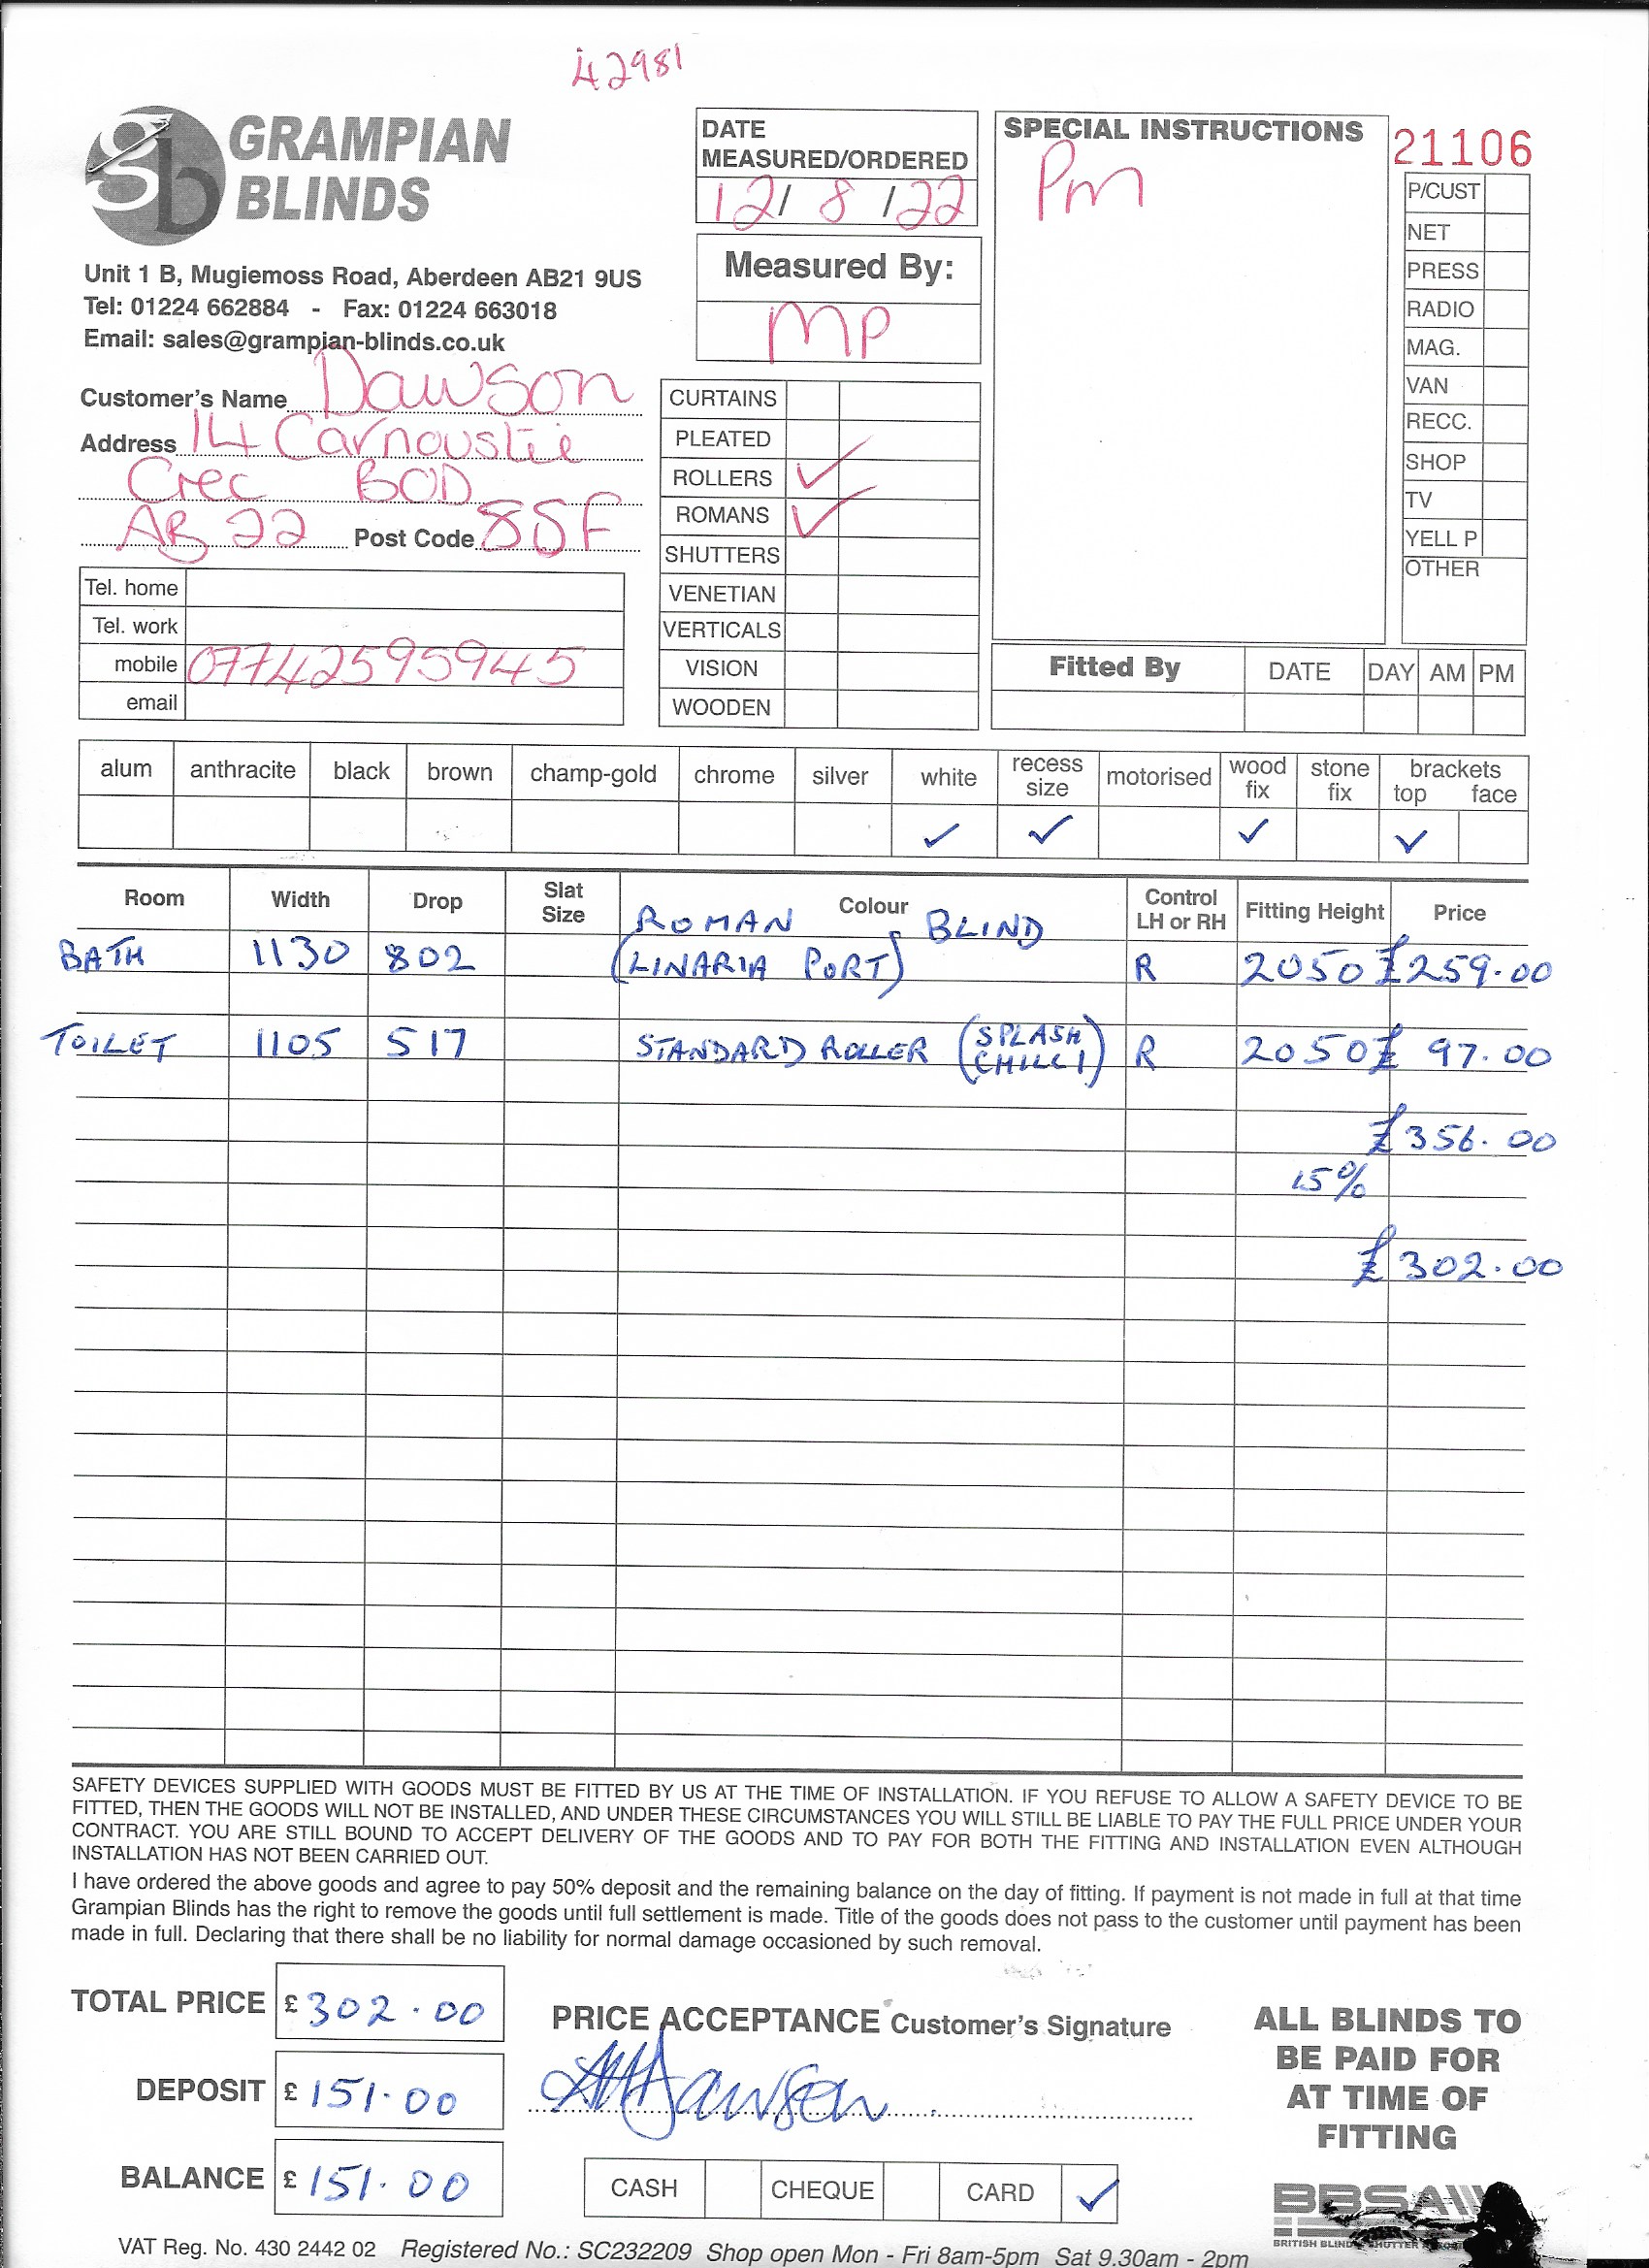 42981
GRAMPIAN
BLINDS
Unit 1 B, Mugiemoss Road, Aberdeen AB21 9US
Tel: 01224 662884 - Fax: 01224 663018
Email: sales@grampian-blinds.co.uk
DATE
MEASURED/ORDERED
12/ 8 /22
Measured By:
MP
SPECIAL INSTRUCTIONS
Pm
21106
P/CUST
NET
PRESS
RADIO
MAG.
VAN
RECC.
SHOP
TV
YELL P
OTHER
Customer's Name Dawson
Address 14 Carnoustie
Crec BOD
AB 22 Post Code 8SF
Tel. home
Tel. work
mobile 07742595945
email
CURTAINS
PLEATED
ROLLERS ✓
ROMANS ✓
SHUTTERS
VENETIAN
VERTICALS
VISION
WOODEN
Fitted By DATE DAY AM PM
alum anthracite black brown champ-gold chrome silver white recess size motorised wood fix stone fix brackets top face
✓ ✓ ✓ ✓
Room Width Drop Slat Size Colour Control LH or RH Fitting Height Price
ROMAN BLIND
BATH 1130 802 (LINARIA PORT) R 2050 £259.00
TOILET 1105 517 STANDARD ROLLER (SPLASH CHILLI) R 2050 £ 97.00
£356.00
15%
£302.00
SAFETY DEVICES SUPPLIED WITH GOODS MUST BE FITTED BY US AT THE TIME OF INSTALLATION. IF YOU REFUSE TO ALLOW A SAFETY DEVICE TO BE
FITTED, THEN THE GOODS WILL NOT BE INSTALLED, AND UNDER THESE CIRCUMSTANCES YOU WILL STILL BE LIABLE TO PAY THE FULL PRICE UNDER YOUR
CONTRACT. YOU ARE STILL BOUND TO ACCEPT DELIVERY OF THE GOODS AND TO PAY FOR BOTH THE FITTING AND INSTALLATION EVEN ALTHOUGH
INSTALLATION HAS NOT BEEN CARRIED OUT.
I have ordered the above goods and agree to pay 50% deposit and the remaining balance on the day of fitting. If payment is not made in full at that time
Grampian Blinds has the right to remove the goods until full settlement is made. Title of the goods does not pass to the customer until payment has been
made in full. Declaring that there shall be no liability for normal damage occasioned by such removal.
TOTAL PRICE £ 302.00
DEPOSIT £ 151.00
BALANCE £ 151.00
PRICE ACCEPTANCE Customer's Signature
Dawson
CASH CHEQUE CARD ✓
ALL BLINDS TO
BE PAID FOR
AT TIME OF
FITTING
BBSA
BRITISH BLIND
VAT Reg. No. 430 2442 02 Registered No.: SC232209 Shop open Mon - Fri 8am-5pm Sat 9.30am - 2pm